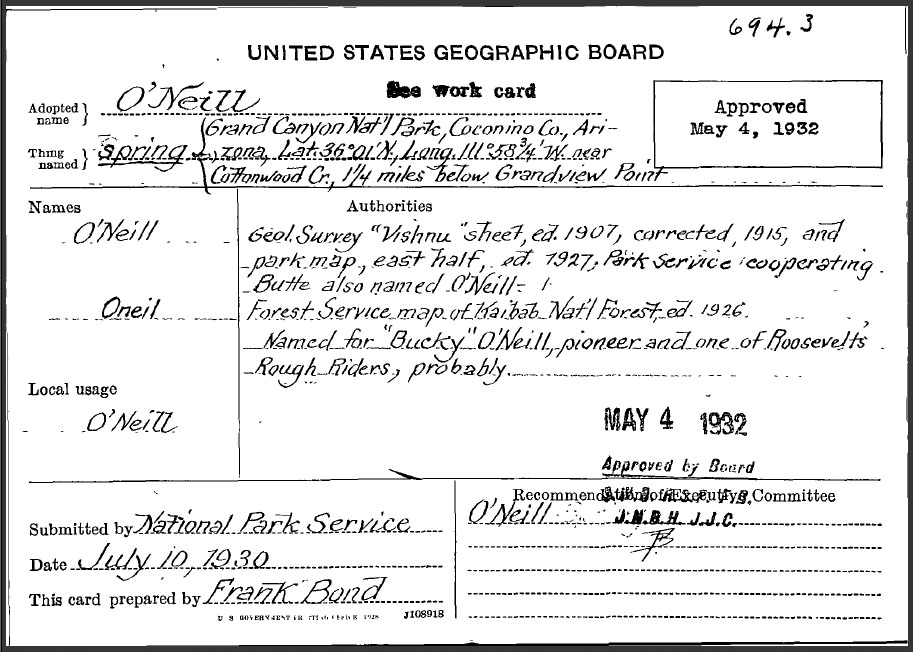 694.3
UNITED STATES GEOGRAPHIC BOARD
See work card
Adopted name } O'Neill
Approved
May 4, 1932
Thing named } spring
Grand Canyon Nat'l Park, Coconino Co., Ari-
zona, Lat. 36°01'N, Long. 111°58¾'W. near
Cottonwood Cr., 1¼ miles below Grandview Point
Names
Authorities
O'Neill
Geol. Survey "Vishnu" sheet, ed. 1907, corrected, 1915, and
park map, east half, ed. 1927, Park Service cooperating.
Butte also named O'Neill
Oneil
Forest Service map of Kaibab Nat'l Forest, ed. 1926.
Named for "Bucky" O'Neill, pioneer and one of Roosevelts
Rough Riders, probably.
Local usage
O'Neill
MAY 4 1932
Approved by Board
Recommendation of Executive Committee
O'Neill
J.N.B.H. J.J.C.
Submitted by National Park Service
Date July 10, 1930
This card prepared by Frank Bond
J108918